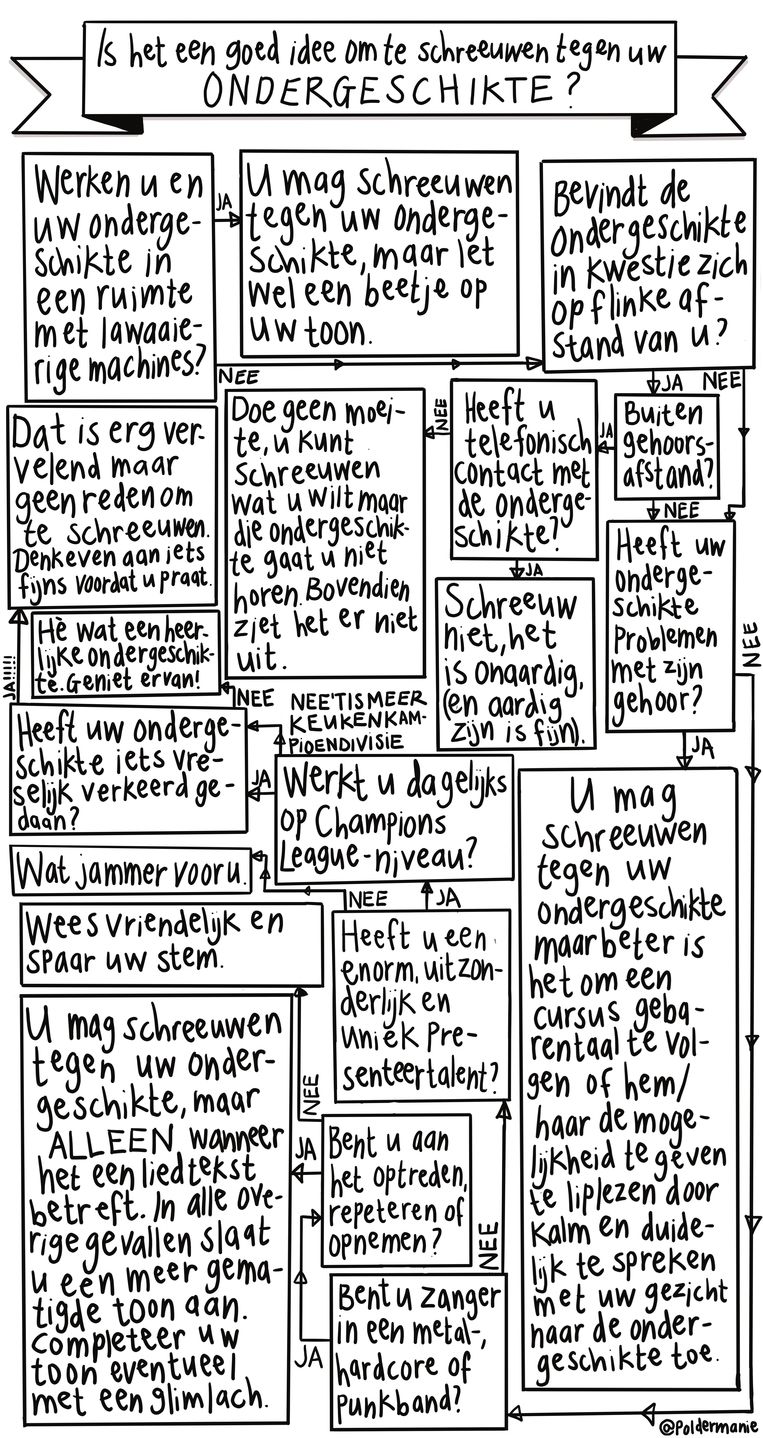 Is het een goed idee om te schreeuwen tegen uw
ONDERGESCHIKTE?
Werken u en
uw onderge-
schikte in
een ruimte
met lawaaie-
rige machines?
JA
NEE
U mag schreeuwen
tegen uw onderge-
schikte, maar let
wel een beetje op
uw toon.
Bevindt de
ondergeschikte
in kwestie zich
op flinke af-
stand van u?
JA
NEE
Buiten
gehoors-
afstand?
JA
NEE
Heeft u
telefonisch
contact met
de onderge-
schikte?
NEE
JA
Doe geen moei-
te, u kunt
schreeuwen
wat u wilt maar
die ondergeschik-
te gaat u niet
horen. Bovendien
ziet het er niet
uit.
Schreeuw
niet, het
is onaardig,
(en aardig
zijn is fijn).
Heeft uw
onderge-
schikte
problemen
met zijn
gehoor?
NEE
JA
U mag
schreeuwen
tegen uw
ondergeschikte
maar beter is
het om een
cursus geba-
rentaal te vol-
gen of hem/
haar de moge-
lijkheid te geven
te liplezen door
kalm en duide-
lijk te spreken
met uw gezicht
naar de onder-
geschikte toe.
Dat is erg ver-
velend maar
geen reden om
te schreeuwen.
Denk even aan iets
fijns voordat u praat.
JA!!!!!
Hè wat een heer-
lijke ondergeschik-
te. Geniet ervan!
NEE
Heeft uw onderge-
schikte iets vre-
selijk verkeerd ge-
daan?
NEE 'T IS MEER
KEUKENKAM-
PIOENDIVISIE
JA
Werkt u dagelijks
op Champions
League-niveau?
Wat jammer voor u.
NEE
JA
Heeft u een
enorm, uitzon-
derlijk en
uniek pre-
senteertalent?
Wees vriendelijk en
spaar uw stem.
NEE
U mag schreeuwen
tegen uw onder-
geschikte, maar
ALLEEN wanneer
het een liedtekst
betreft. In alle ove-
rige gevallen slaat
u een meer gema-
tigde toon aan.
Completeer uw
toon eventueel
met een glimlach.
JA
Bent u aan
het optreden,
repeteren of
opnemen?
NEE
JA
Bent u zanger
in een metal-,
hardcore of
punkband?
@Poldermanie